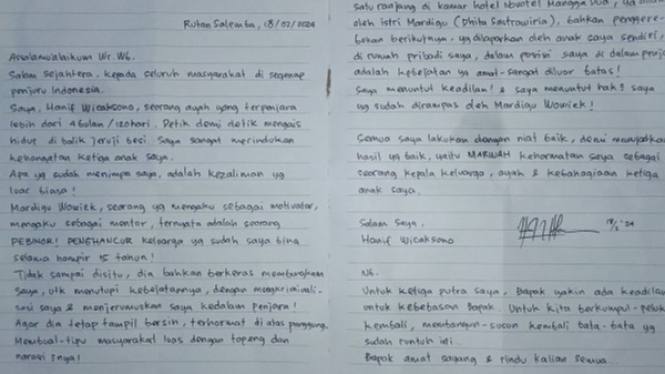 Rutan Salemba, 18/02/2024
Assalamualaikum Wr. Wb.
Salam Sejahtera, kepada seluruh masyarakat di segenap
penjuru Indonesia.
Saya, Hanif Wicaksono, seorang ayah yang terpenjara
lebih dari 4 bulan / 120 hari. Detik demi detik mengais
hidup di balik jeruji besi. Saya sangat merindukan
kehangatan ketiga anak saya.
Apa yg sudah menimpa saya, adalah kezaliman yg
luar biasa!
Mardigu Wowiek, seorang yg mengaku sebagai motivator,
mengaku sebagai mentor, ternyata adalah seorang
PEBINOR! PENGHANCUR keluarga yg sudah saya bina
selama hampir 15 tahun!
Tidak sampai disitu, dia bahkan berkeras memenjarakan
saya, utk menutupi kebejatannya, dengan
saya & menjerumuskan saya kedalam penjara!
Agar dia tetap tampil bersih, terhormat di atas panggung.
Membual-tipu masyarakat luas dengan topeng dan
narasi 2nya!
satu ranjang di kamar hotel Novotel Mangga Dua, yg
oleh istri Mardigu (Dhita Sastrawiria), bahkan penggere-
bekan berikutnya, yg dilaporkan oleh anak saya sendiri,
di rumah pribadi saya, dalam posisi saya di dalam
adalah kebejatan yg amat-sangat diluar batas!
Saya menuntut keadilan! & saya menuntut hak2 saya
yg sudah dirampas oleh Mardigu Wowiek!
Semua saya lakukan dengan niat baik, demi
hasil yg baik, yaitu MARWAH kehormatan saya sebagai
seorang kepala keluarga, ayah & kebahagiaan ketiga
anak saya.
Salam Saya,
Hanif Wicaksono
NB.
Untuk ketiga putra saya, Bapak yakin ada
untuk kebebasan Bapak. Untuk kita berkumpul-
kembali, membangun-susun kembali bata-bata yg
sudah runtuh ini..
Bapak amat sayang & rindu kalian semua...